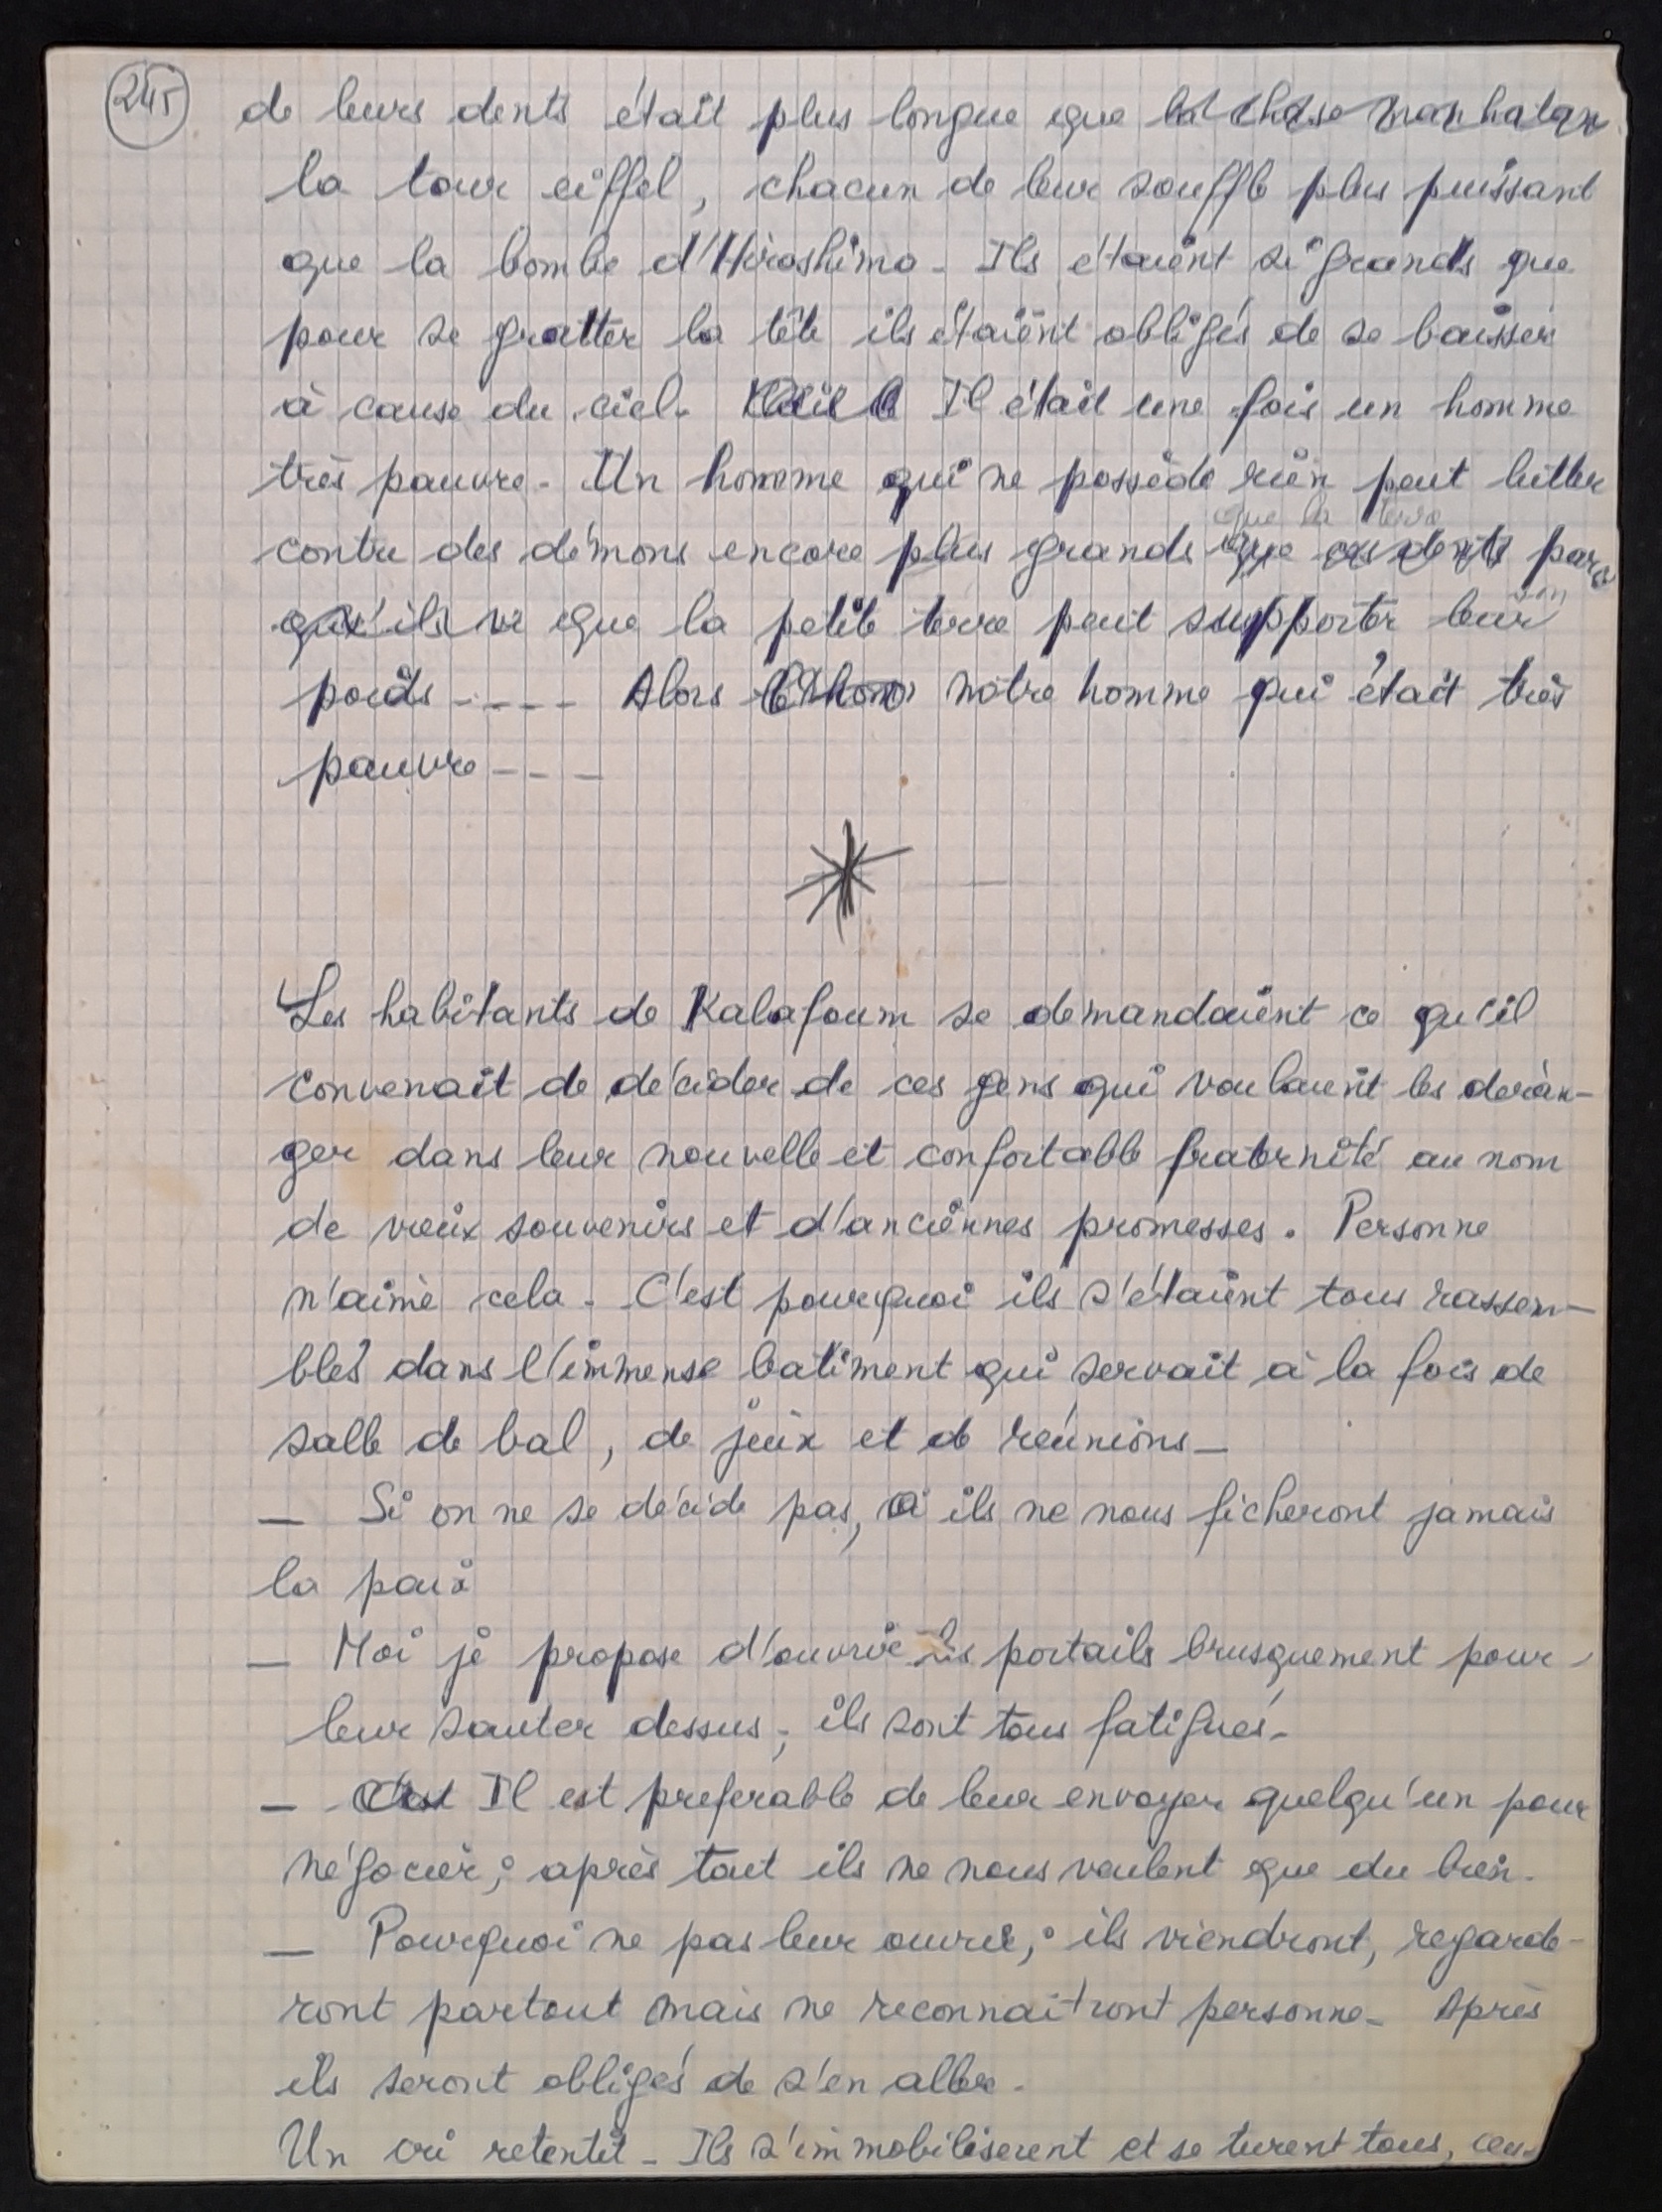 245
de leurs dents était plus longue que la chose manhatan
la tour eiffel, chacun de leur souffle plus puissant
que la bombe d'Hiroshima - Ils étaient si grands que
pour se gratter la tête ils étaient obligés de se baisser
à cause du ciel. Il était une fois un homme
très pauvre - Un homme qui ne possède rien peut lutter
que la terre
contre des démons encore plus grands que ces dents parce
qu'ils ve que la petite terre peut supporter leur
poids ---- Alors notre homme qui était très
pauvre ---
Les habitants de Kalafoum se demandaient ce qu'il
convenait de décider de ces gens qui voulaient les déran-
ger dans leur nouvelle et confortable fraternité au nom
de vieux souvenirs et d'anciennes promesses. Personne
n'aime cela - C'est pourquoi ils s'étaient tous rassem-
blés dans l'immense batiment qui servait à la fois de
salle de bal, de jeux et de réunions -
- Si on ne se décide pas, ils ne nous ficheront jamais
la paix
- Moi je propose d'ouvrir les portails brusquement pour
leur sauter dessus ; ils sont tous fatigués -
- C'est Il est préferable de leur envoyer quelqu'un pour
négocier ; après tout ils ne nous veulent que du bien.
- Pourquoi ne pas leur ouvrir ; ils viendront, regarde-
ront partout mais ne reconnaitront personne - Après
ils seront obligés de s'en aller -
Un cri retentit - Ils s'immobiliserent et se turent tous,